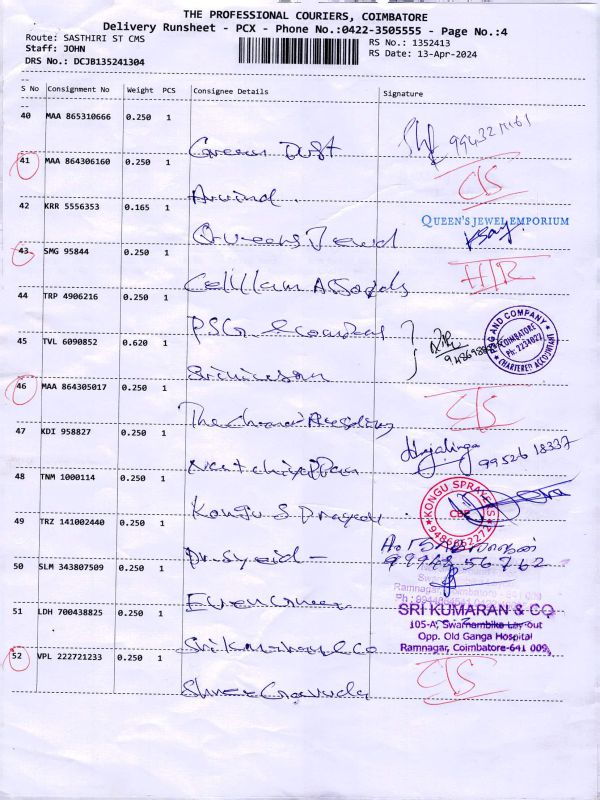 THE PROFESSIONAL COURIERS, COIMBATORE
Delivery Runsheet - PCX - Phone No.:0422-3505555 - Page No.:4
Route: SASTHIRI ST CMS
RS No.: 1352413
Staff: JOHN
RS Date: 13-Apr-2024
DRS No.: DCJB135241304
S No Consignment No Weight PCS Consignee Details Signature
40 MAA 865310666 0.250 1
Green Dust
41 MAA 864306160 0.250 1
C/S
Arvind
42 KRR 5556353 0.165 1
QUEEN'S JEWEL EMPORIUM
Queens Jewel
43 SMG 95844 0.250 1
44 TRP 4906216 0.250 1
PSG & company
PSG AND COMPANY
COIMBATORE
Ph: 2234021
CHARTERED ACCOUNTANT
45 TVL 6090852 0.620 1
Srinivasan
46 MAA 864305017 0.250 1
C/S
The
47 KDI 958827 0.250 1
99526 18337
48 TNM 1000114 0.250 1
Kongu Sprayers
KONGU SPRAYERS
CBE
9486662272
49 TRZ 141002440 0.250 1
Dr. Syed
99948 56762
50 SLM 343807509 0.250 1
Ramnagar, Coimbatore - 641 009
Evergreen
SRI KUMARAN & CO
51 LDH 700438825 0.250 1
105-A, Swarnambika Lay-out
Opp. Old Ganga Hospital
Ramnagar, Coimbatore-641 009.
Sri Kumaran & co
52 VPL 222721233 0.250 1
C/S
Shree